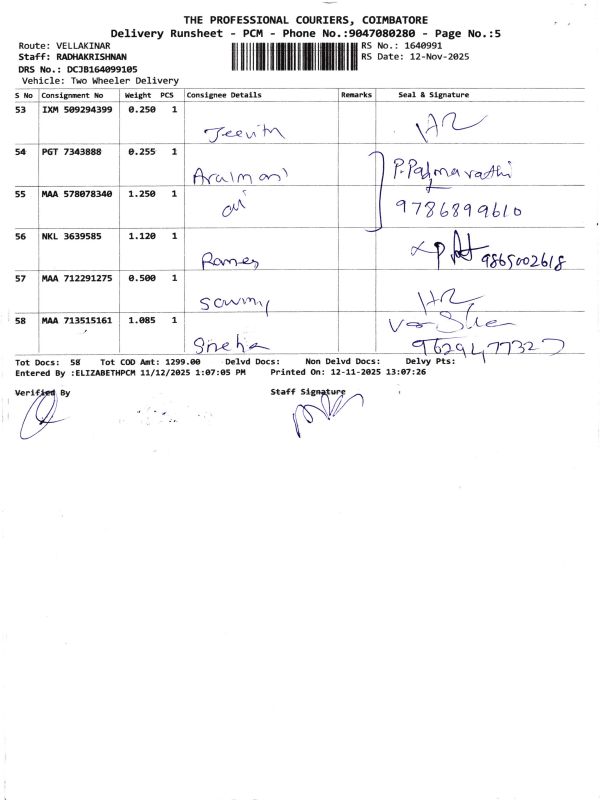 THE PROFESSIONAL COURIERS, COIMBATORE
Delivery Runsheet - PCM - Phone No.:9047080280 - Page No.:5
Route: VELLAKINAR RS No.: 1640991
Staff: RADHAKRISHNAN RS Date: 12-Nov-2025
DRS No.: DCJB164099105
Vehicle: Two Wheeler Delivery
S No Consignment No Weight PCS Consignee Details Remarks Seal & Signature
53 IXM 509294399 0.250 1
Jeevith
54 PGT 7343888 0.255 1
Arulmani P. Padmavathi
55 MAA 578078340 1.250 1
9786899610
56 NKL 3639585 1.120 1
Rames 9865002618
57 MAA 712291275 0.500 1
Sowmy
58 MAA 713515161 1.085 1
Sneha 9629477327
Tot Docs: 58 Tot COD Amt: 1299.00 Delvd Docs: Non Delvd Docs: Delvy Pts:
Entered By :ELIZABETHPCM 11/12/2025 1:07:05 PM Printed On: 12-11-2025 13:07:26
Verified By Staff Signature